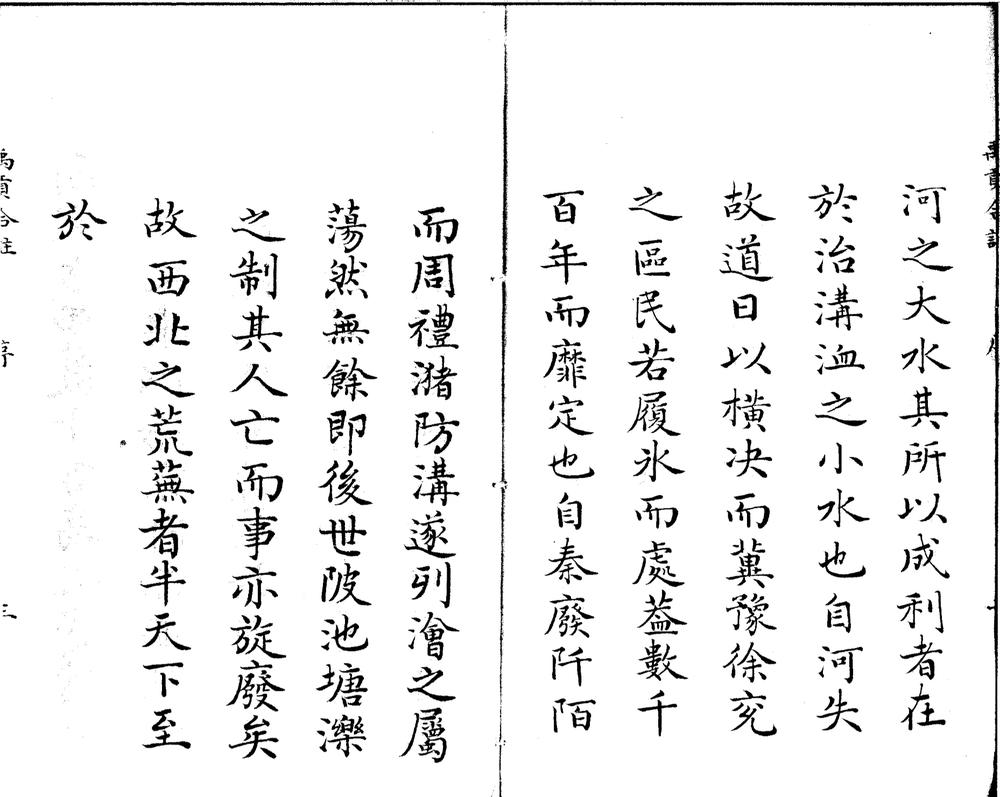 河之大水其所以成利者在
於治溝洫之小水也自河失
故道日以橫决而冀豫徐兖
之區民若履氷而處葢數千
百年而靡定也自秦廢阡陌
而周禮瀦防溝遂列澮之屬
蕩然無餘即後世陂池塘濼
之制其人亡而事亦旋廢矣
故西北之荒蕪者半天下至
於
禹貢合註
序
三